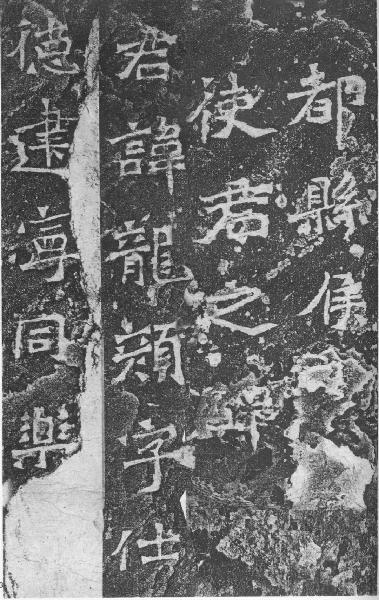 都縣侯
使君之碑
君諱龍顏字仕
德建寧同樂